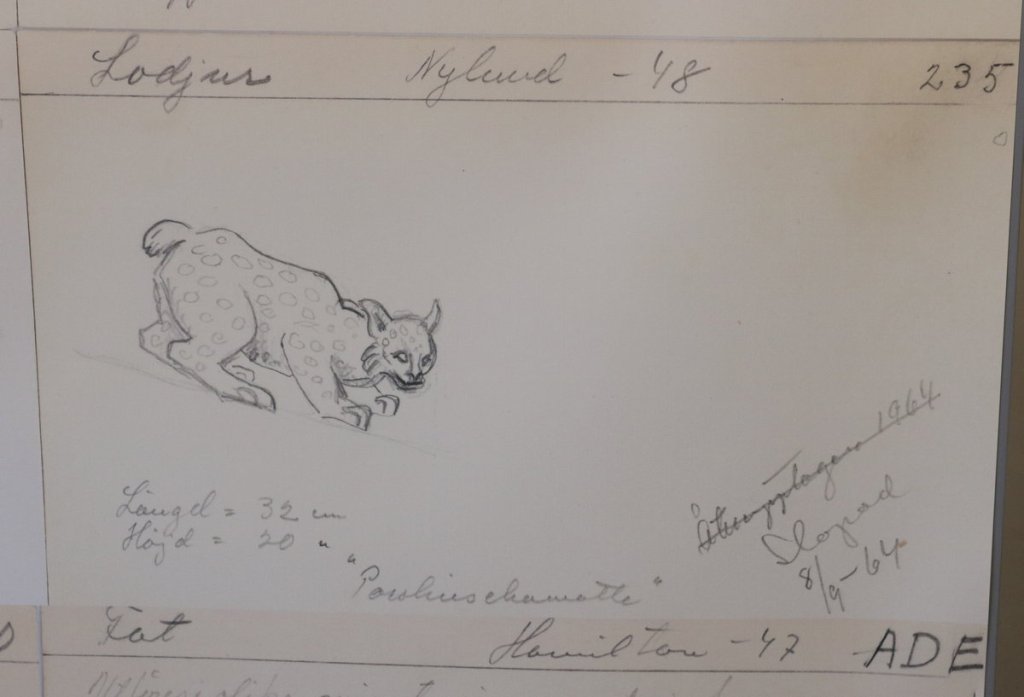 Lodjur Nylund -48 235
Återupptagen 1964
Slopad
8/9-64
Längd = 32 cm
Höjd = 20 "
"Porslinschamotte"
Fat Hamilton -47 ADE